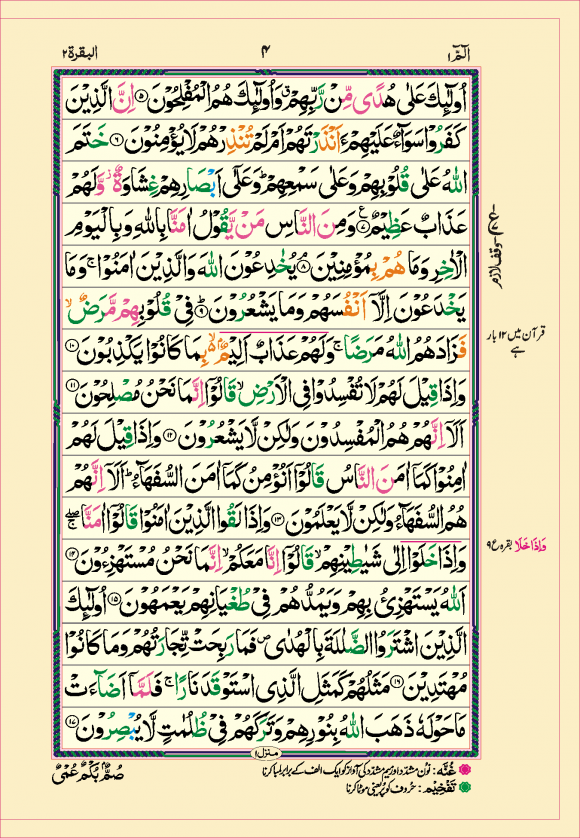 الٓمّٓ ١ ۴ البقرة ٢
اُولٰٓئِكَ عَلٰى هُدًى مِّنْ رَّبِّهِمْ ۗ وَاُولٰٓئِكَ هُمُ الْمُفْلِحُوْنَ ﴿۵﴾ اِنَّ الَّذِيْنَ
كَفَرُوْا سَوَآءٌ عَلَيْهِمْ ءَاَنْذَرْتَهُمْ اَمْ لَمْ تُنْذِرْهُمْ لَا يُؤْمِنُوْنَ ﴿۶﴾ خَتَمَ
اللّٰهُ عَلٰى قُلُوْبِهِمْ وَعَلٰى سَمْعِهِمْ ؕ وَعَلٰٓى اَبْصَارِهِمْ غِشَاوَةٌ ؗ وَّلَهُمْ
عَذَابٌ عَظِيْمٌ ﴿۷﴾ ع وَمِنَ النَّاسِ مَنْ يَّقُوْلُ اٰمَنَّا بِاللّٰهِ وَبِالْيَوْمِ
الْاٰخِرِ وَمَا هُمْ بِمُؤْمِنِيْنَ ﴿۸﴾ يُخٰدِعُوْنَ اللّٰهَ وَالَّذِيْنَ اٰمَنُوْا ۚ وَمَا
يَخْدَعُوْنَ اِلَّاۤ اَنْفُسَهُمْ وَمَا يَشْعُرُوْنَ ﴿۹﴾ فِيْ قُلُوْبِهِمْ مَّرَضٌ ۙ
فَزَادَهُمُ اللّٰهُ مَرَضًا ۚ وَلَهُمْ عَذَابٌ اَلِيْمٌۢ ۙ۬ بِمَا كَانُوْا يَكْذِبُوْنَ ﴿۱۰﴾
وَاِذَا قِيْلَ لَهُمْ لَا تُفْسِدُوْا فِي الْاَرْضِ ۙ قَالُوْۤا اِنَّمَا نَحْنُ مُصْلِحُوْنَ ﴿۱۱﴾
اَلَاۤ اِنَّهُمْ هُمُ الْمُفْسِدُوْنَ وَلٰكِنْ لَّا يَشْعُرُوْنَ ﴿۱۲﴾ وَاِذَا قِيْلَ لَهُمْ
اٰمِنُوْا كَمَاۤ اٰمَنَ النَّاسُ قَالُوْۤا اَنُؤْمِنُ كَمَاۤ اٰمَنَ السُّفَهَآءُ ؕ اَلَاۤ اِنَّهُمْ
هُمُ السُّفَهَآءُ وَلٰكِنْ لَّا يَعْلَمُوْنَ ﴿۱۳﴾ وَاِذَا لَقُوا الَّذِيْنَ اٰمَنُوْا قَالُوْۤا اٰمَنَّا ۖۚ
وَاِذَا خَلَوْا اِلٰى شَيٰطِيْنِهِمْ ۙ قَالُوْۤا اِنَّا مَعَكُمْ ۙ اِنَّمَا نَحْنُ مُسْتَهْزِءُوْنَ ﴿۱۴﴾
اَللّٰهُ يَسْتَهْزِئُ بِهِمْ وَيَمُدُّهُمْ فِيْ طُغْيَانِهِمْ يَعْمَهُوْنَ ﴿۱۵﴾ اُولٰٓئِكَ
الَّذِيْنَ اشْتَرَوُا الضَّلٰلَةَ بِالْهُدٰى ۪ فَمَا رَبِحَتْ تِّجَارَتُهُمْ وَمَا كَانُوْا
مُهْتَدِيْنَ ﴿۱۶﴾ مَثَلُهُمْ كَمَثَلِ الَّذِي اسْتَوْقَدَ نَارًا ۚ فَلَمَّاۤ اَضَآءَتْ
مَا حَوْلَهٗ ذَهَبَ اللّٰهُ بِنُوْرِهِمْ وَتَرَكَهُمْ فِيْ ظُلُمٰتٍ لَّا يُبْصِرُوْنَ ﴿۱۷﴾
وقف لازم
قرآن میں ۱۲ بار
ہے
وَاِذَا خَلَا بقرہ ع ۹
منزل ۱
صُمٌّۢ بُكْمٌ عُمْيٌ
غُنَّه: نون مشدد اور میم مشدد کی آواز کو ایک الف کے برابر لمبا کرنا
تَفْخِيْم: حروف کو پُر یعنی موٹا کرنا